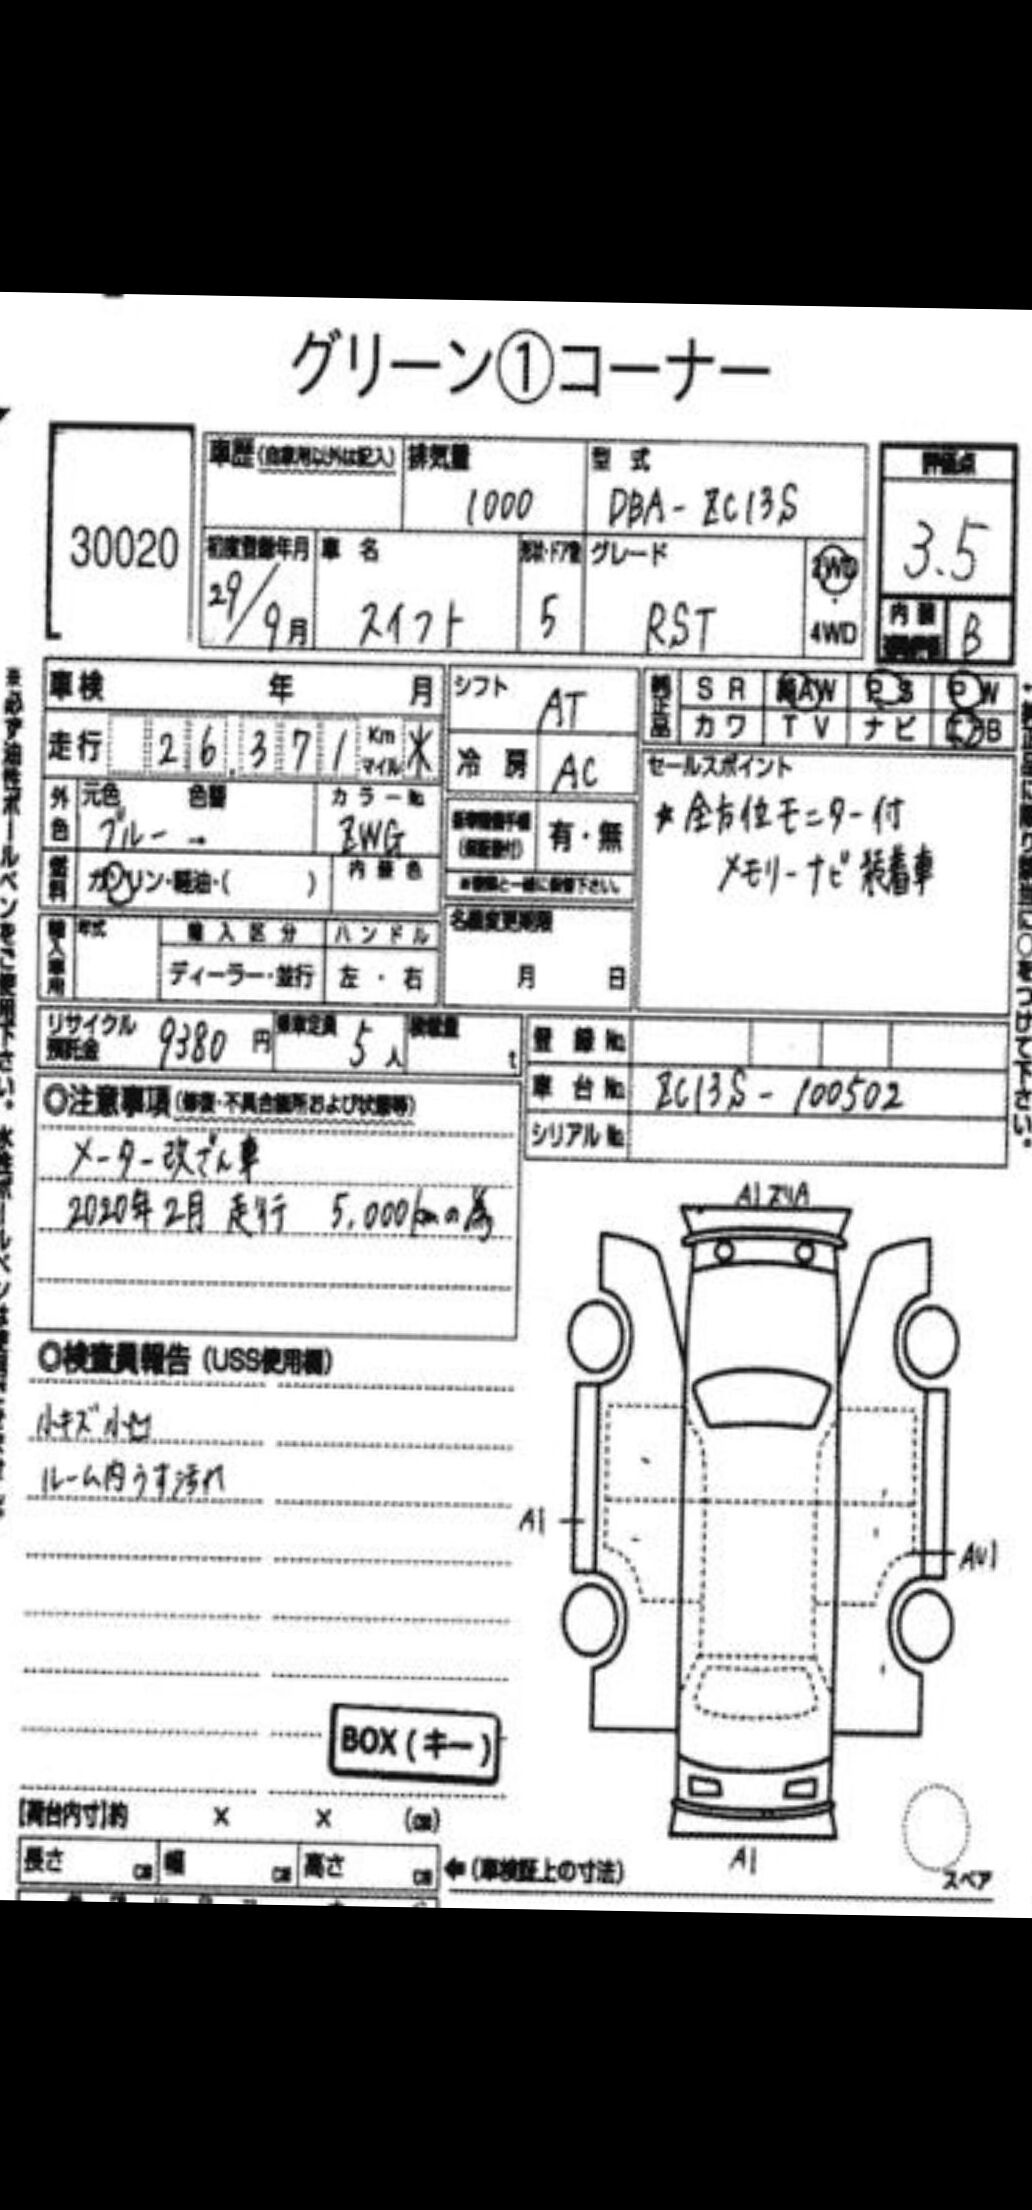 グリーン①コーナー
30020
車歴(自家用以外は記入)
排気量
1000
型式
DBA-ZC13S
評価点
3.5
初度登録年月
29/9月
車名
スイフト
形状・ドア数
5
グレード
RST
2WD
・
4WD
内装
B
車検 年 月
シフト
AT
純正品
SR AW PS PW
カワ TV ナビ エアB
走行 26,371 Km マイル
冷房
AC
セールスポイント
★全方位モニター付
メモリーナビ装着車
外色
元色 色替
ブルー →
カラーNo.
ZWG
(保証書付)
有・無
※書類と一緒に保管下さい。
燃料
ガソリン・軽油・( )
内装色
輸入車用
年式
輸入区分
ディーラー・並行
ハンドル
左・右
名義変更期限
月 日
リサイクル預託金 9380円
乗車定員 5人
積載量 t
登録No.
車台No. ZC13S-100502
シリアルNo.
◎注意事項(修復・不具合箇所および状態等)
メーター改ざん車
2020年2月 走行 5,000kmの為
◎検査員報告(USS使用欄)
小キズ小凹
ルーム内うす汚れ
A1 ズリA
A1
AU1
A1
BOX(キー)
スペア
[荷台内寸]約 × × (cm)
長さ cm 幅 cm 高さ cm
←(車検証上の寸法)